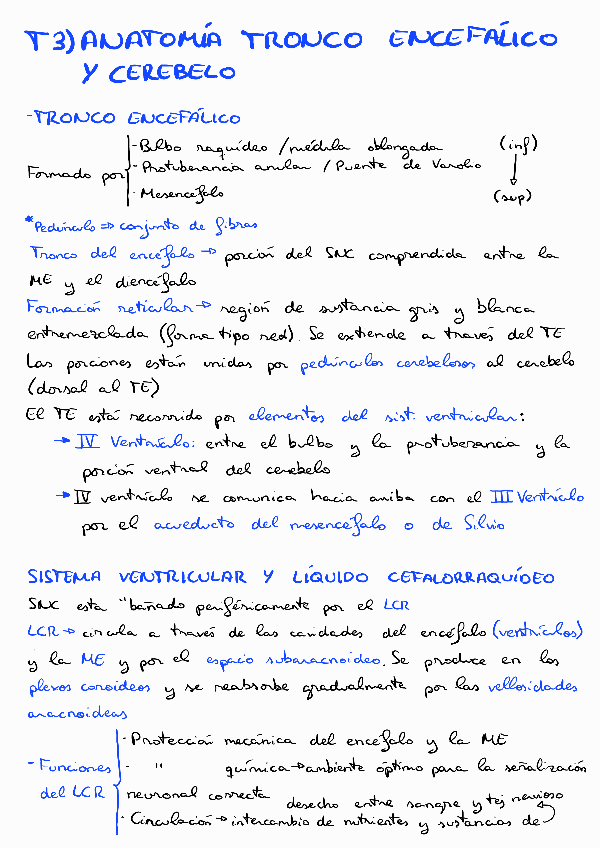 T3) ANATOMÍA TRONCO ENCEFÁLICO
Y CEREBELO
-TRONCO ENCEFÁLICO
Formado por
- Bulbo raquídeo / médula oblongada (inf)
- Protuberancia anular / Puente de Varolio
- Mesencéfalo (sup)
*Pedúnculo => conjunto de fibras
Tronco del encéfalo → porción del SNC comprendida entre la
ME y el diencéfalo
Formación reticular → región de sustancia gris y blanca
entremezclada (forma tipo red). Se extiende a través del TE
Las porciones están unidas por pedúnculos cerebelosos al cerebelo
(dorsal al TE)
El TE está recorrido por elementos del sist. ventricular:
→ IV Ventrículo: entre el bulbo y la protuberancia y la
porción ventral del cerebelo
→ IV ventrículo se comunica hacia arriba con el III Ventrículo
por el acueducto del mesencéfalo o de Silvio
SISTEMA VENTRICULAR Y LÍQUIDO CEFALORRAQUÍDEO
SNC esta "bañado periféricamente por el LCR
LCR → circula a través de las cavidades del encéfalo (ventrículos)
y la ME y por el espacio subaracnoideo. Se produce en los
plexos coroideos y se reabsorbe gradualmente por las vellosidades
aracnoideas
- Funciones del LCR
- Protección mecánica del encéfalo y la ME
- " química → ambiente óptimo para la señalización
neuronal correcta
desecho entre sangre y tej nervioso
- Circulación → intercambio de nutrientes y sustancias de